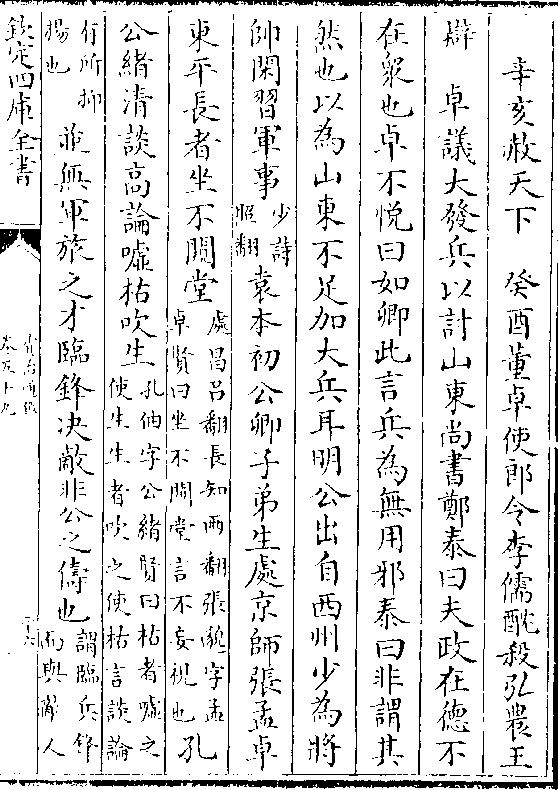 辛亥赦天下　癸酉董卓使郎令李儒酖殺弘農王
辯　卓議大發兵以討山東尚書鄭泰曰夫政在德不
在衆也卓不悦曰如卿此言兵為無用邪泰曰非謂其
然也以為山東不足加大兵耳明公出自西州少為將
帥閑習軍事少詩照翻袁本初公卿子弟生處京師張孟卓
東平長者坐不闚堂處昌吕翻長知两翻張邈字孟卓賢曰坐不闚堂言不妄視也孔
公緒清談高論嘘枯吹生孔伷字公緒賢曰枯者嘘之使生生者吹之使枯言談論
有所抑揚也並無軍旅之才臨鋒决敵非公之儔也謂臨兵鋒而與敵人
欽定四庫全書
資治通鑑
卷五十九